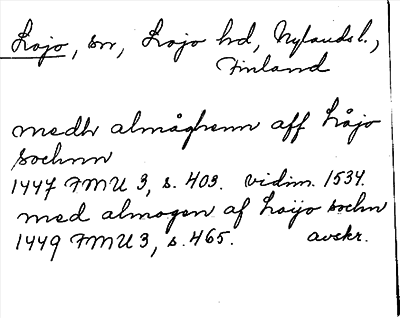 Lojo, sn, Lojo hd, Nylands l.,
Finland
medh almåghenn aff Låjo
sochnn
1447 FMU 3, s. 403. vidim. 1534.
med almogen af Loijo sochn
1449 FMU 3, s. 465. avskr.